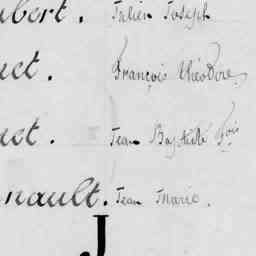 ubert. Julien Joseph
uet. François Theodore
uet. Jean Baptiste Fois
nault. Jean Marie.
J